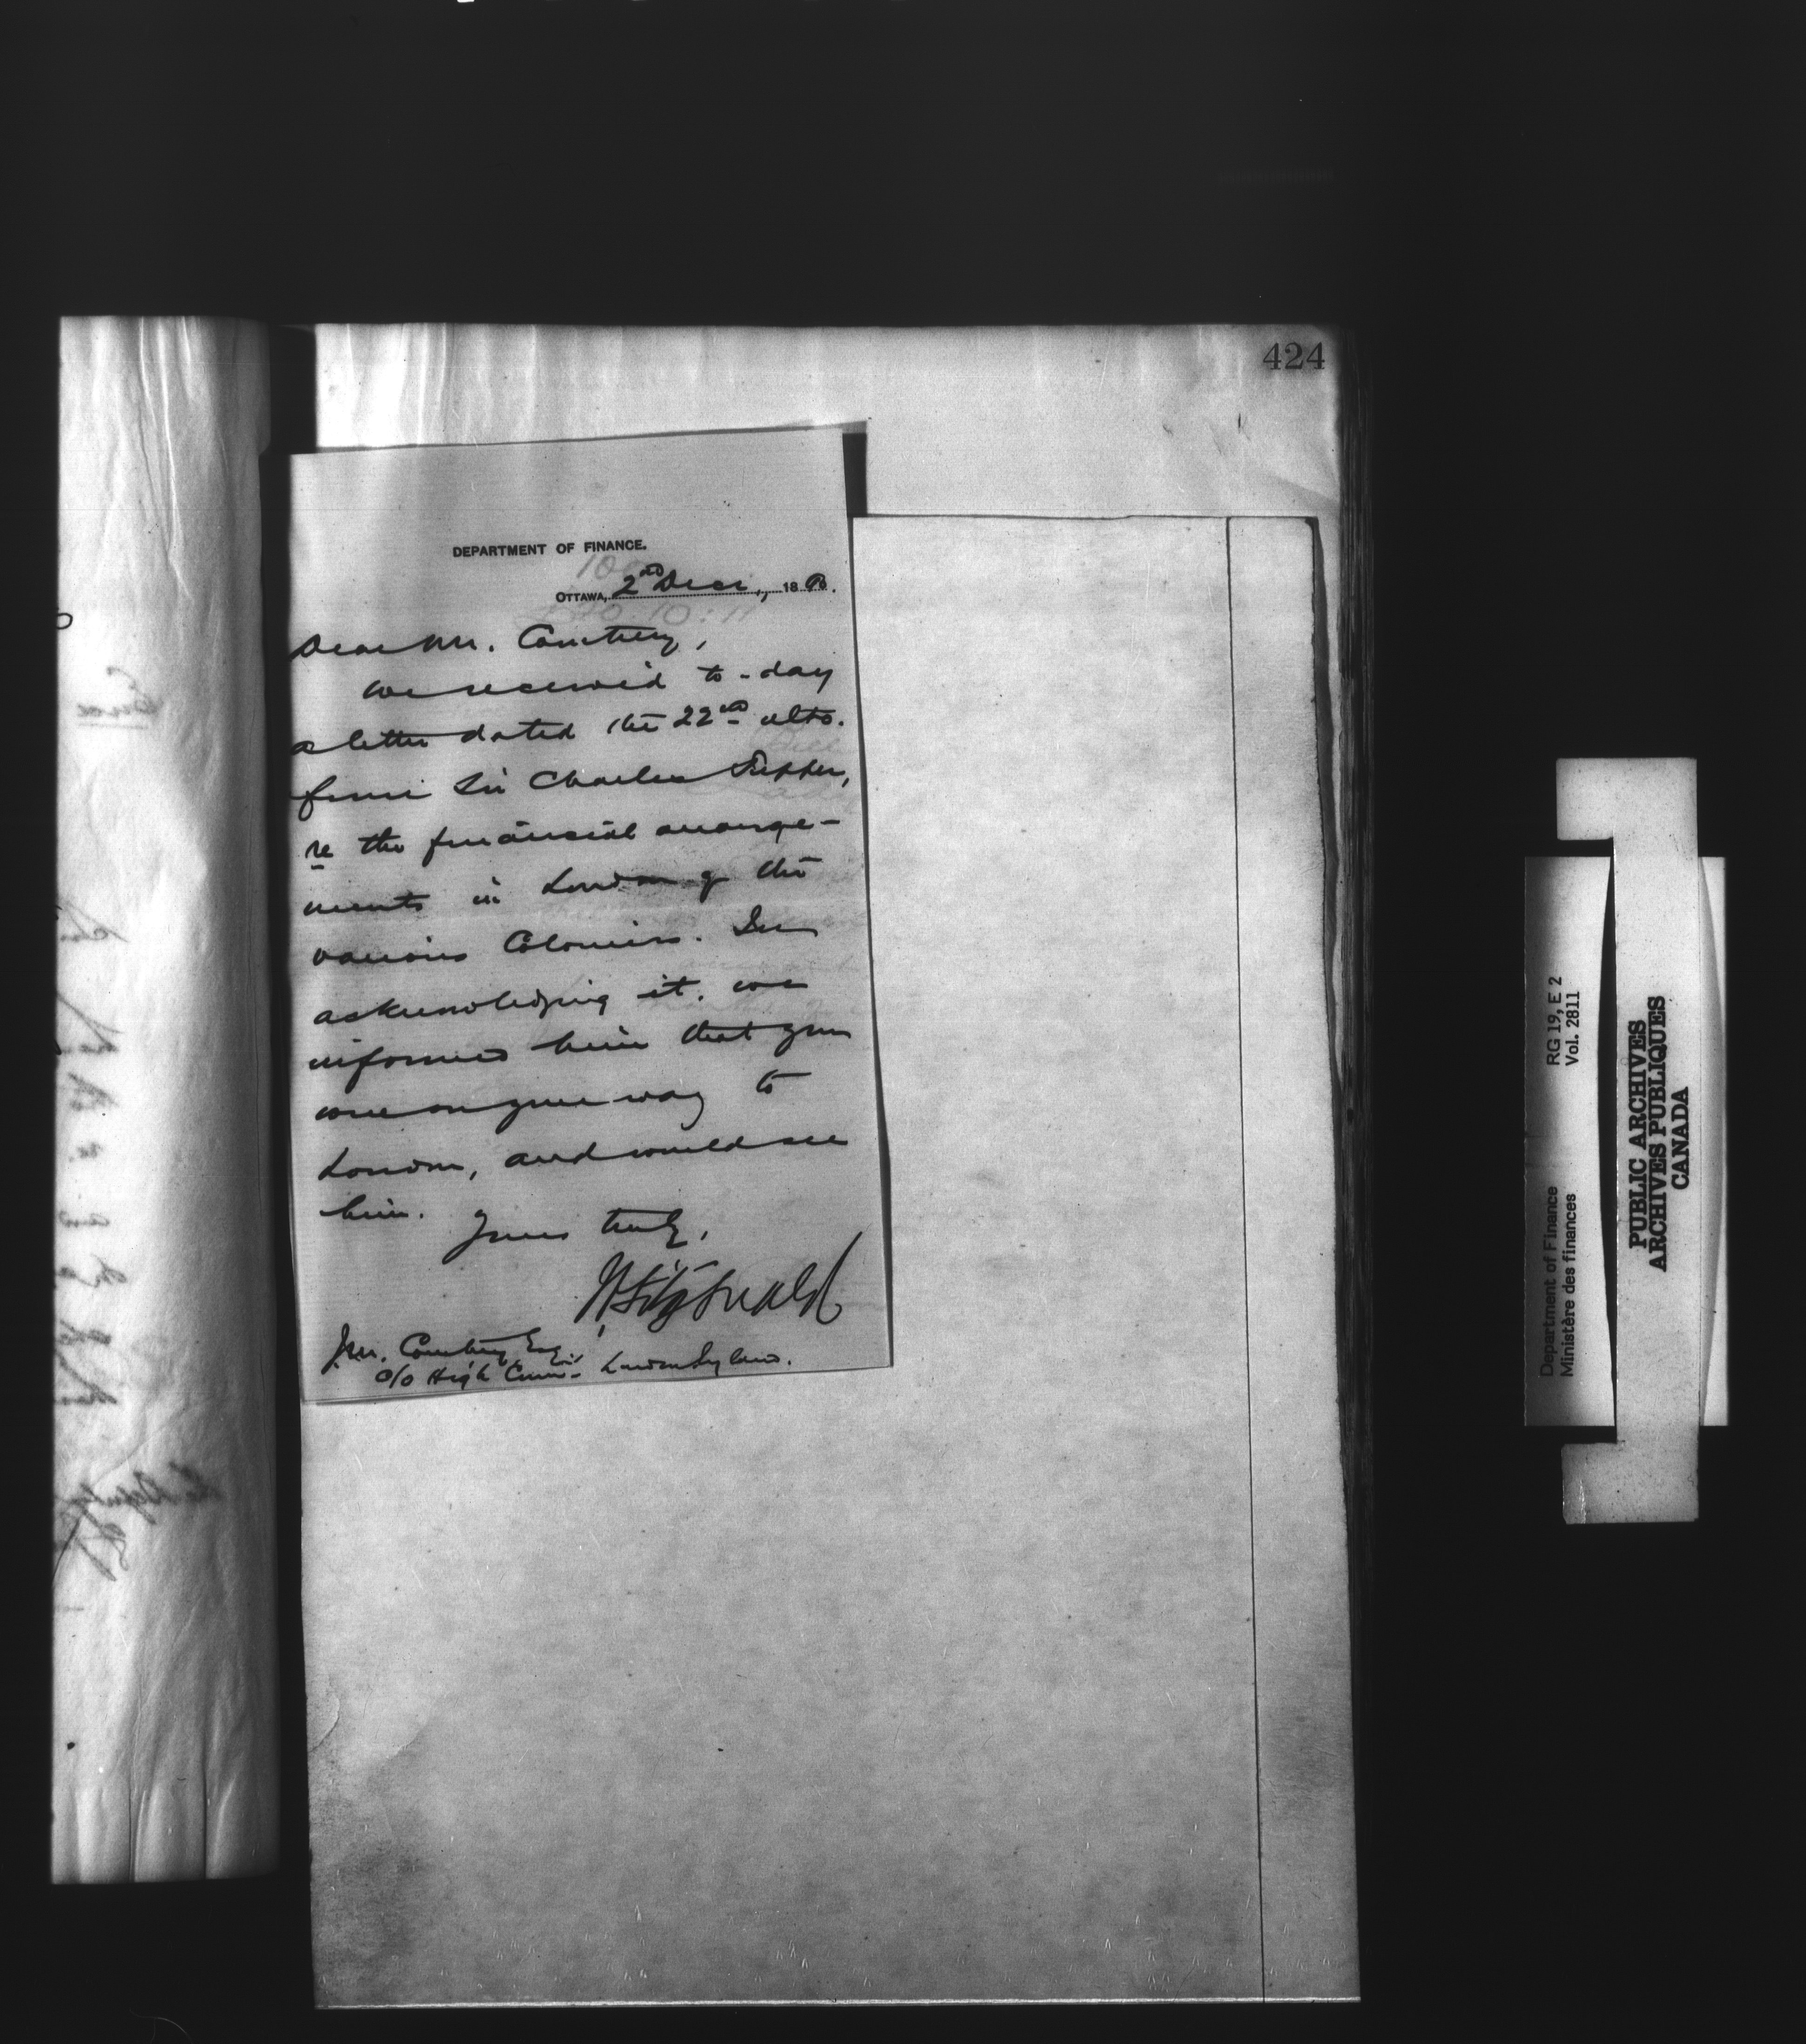 424
DEPARTMENT OF FINANCE.
OTTAWA, 2nd Decr., 1890.
Dear Mr. Courtney,
We received to-day
a letter dated the 22nd ulto.
from Sir Charles Tupper,
re the financial arrange-
ments in London of the
various Colonies. In
acknowledging it, we
informed him that you
were on your way to
London, and would see
him.
Yours truly,
Fitzgerald
J.M. Courtney Esq.
c/o High Commr. London England.
Department of Finance RG 19, E 2
Ministère des finances Vol. 2811
PUBLIC ARCHIVES
ARCHIVES PUBLIQUES
CANADA